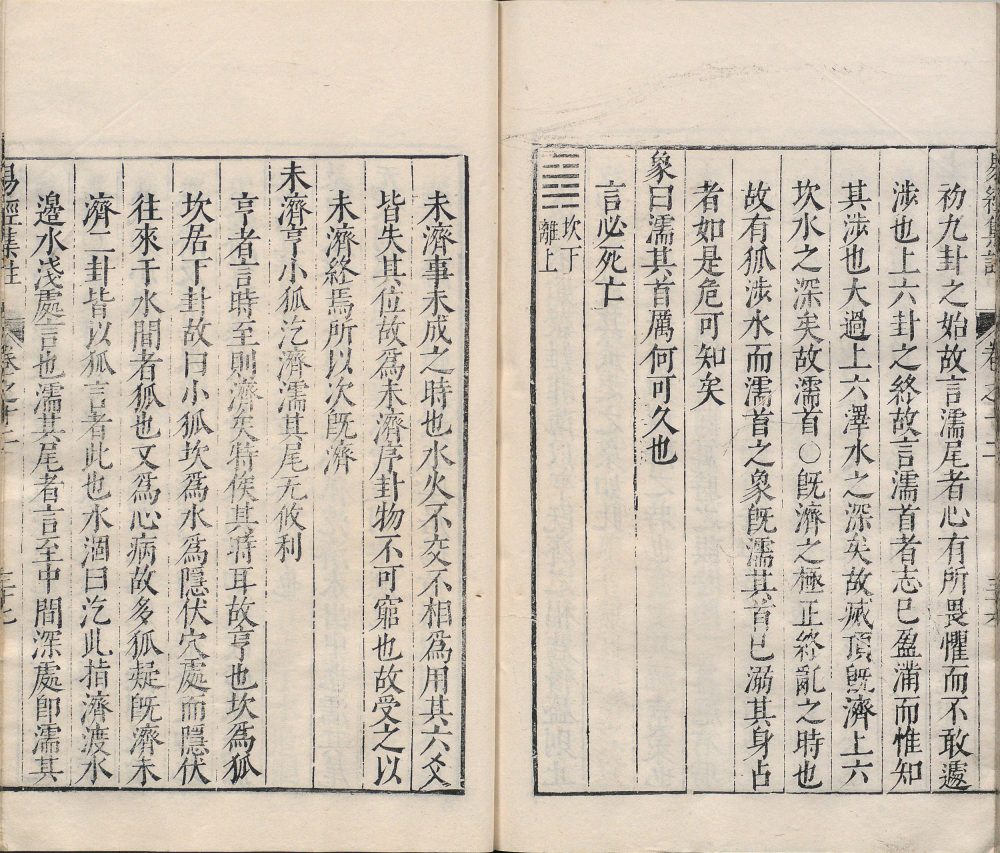 初九卦之始故言濡尾者心有所畏懼而不敢遽
涉也上六卦之終故言濡首者志已盈滿而惟知
其涉也大過上六澤水之深矣故滅頂旣濟上六
坎水之深矣故濡首○旣濟之極正終亂之時也
故有狐涉水而濡首之象旣濡其首已溺其身占
者如是危可知矣
象曰濡其首厲何可久也
言必死亡
坎下
離上
未濟事未成之時也水火不交不相爲用其六爻
皆失其位故爲未濟序卦物不可窮也故受之以
未濟終焉所以次旣濟
未濟亨小狐汔濟濡其尾无攸利
亨者言時至則濟矣特俟其時耳故亨也坎爲狐
坎居下卦故曰小狐坎爲水爲隱伏穴處而隱伏
往來于水間者狐也又爲心病故多狐疑旣濟未
濟二卦皆以狐言者此也水涸曰汔此指濟渡水
邊水淺處言也濡其尾者言至中間深處卽濡其
易經集註
卷之十二
三十七